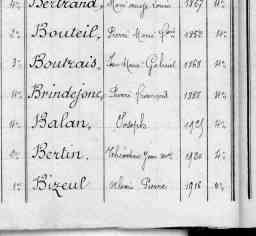 4º Bertrand, 1867 4º
2º Bouteil, Pierre Marie 1850 4º
3º Boutrais, Jean Marie Gabriel 1868 4º
4º Brindejonc, Pierre François 1888 4º
4º Balan, Joseph 1925 4º
Bertin, Jean 1920 4º
1º Bizeul, Pierre 1918